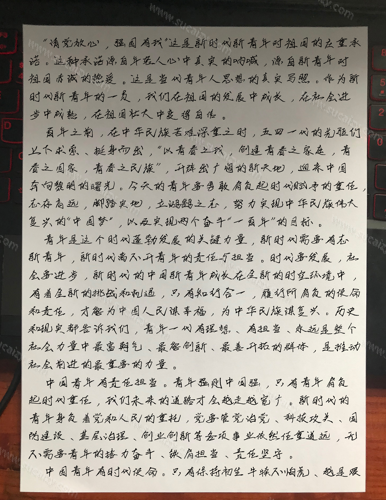 "请党放心，强国有我"这是新时代新青年对祖国的庄重承
诺。这种承诺源自年轻人心中真实的呐喊，源自新青年对
祖国赤诚的热爱。这是当代青年人思想的真实写照。作为新
时代新青年的一员，我们在祖国的发展中成长，在社会进
步中成熟，在祖国壮大中更得自信。
百年之前，在中华民族苦难深重之时，五四一代的先驱们
上下求索、挺身而出，"以青春之我，创建青春之家庭，青
春之国家，青春之民族"，开辟出广阔的新天地，迎来中国
奔向黎明的曙光。今天的青年要勇敢肩负起时代赋予的重任，
志存高远，脚踏实地，立鸿鹄之志，努力实现中华民族伟大
复兴的"中国梦"，以及实现两个奋斗"一百年"的目标。
青年是这个时代蓬勃发展的关键力量，新时代需要有志
新青年，新时代离不开青年的责任与担当。时代要发展，社
会要进步，新时代的中国新青年成长在全新的时空环境中，
有着全新的挑战和机遇，只有知行合一，履行所肩负的使命
和责任，才能为中国人民谋幸福，为中华民族谋复兴。历史
和现实都告诉我们，青年一代有理想、有担当、永远是整个
社会力量中最富朝气、最能创新、最善开拓的群体，是推动
社会前进的最重要的力量。
中国青年有责任担当。青年强则中国强，只有青年肩负
起时代重任，我们未来的道路才会越走越宽广。新时代的
青年身负着党和人民的重托，党要管党治党、科技攻关、国
防建设、基层治理、创业创新等各项事业依然任重道远，无
不需要青年的接力奋斗、敢肩担当、责任坚守。
中国青年有时代使命。只有保持初生牛犊不怕虎、越是艰